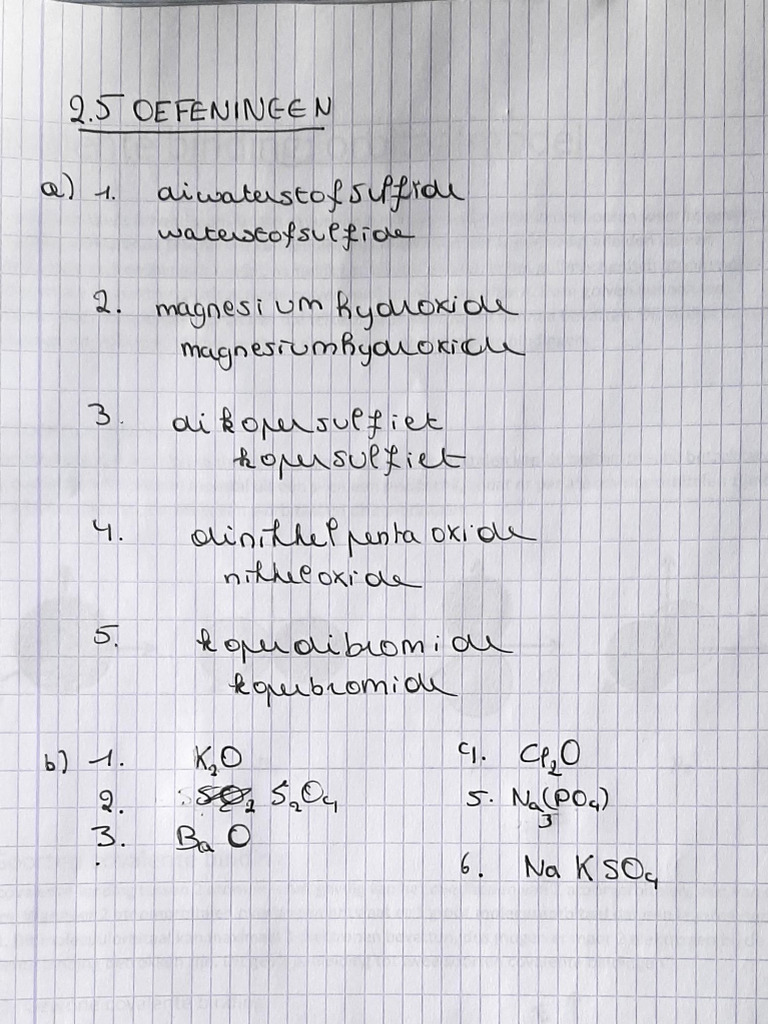 2.5 OEFENINGEN
a) 1. diwaterstofsulfide
waterstofsulfide
2. magnesiumhydroxide
magnesiumhydroxide
3. dikopersulfiet
kopersulfiet
4. dinikkelpentaoxide
nikkeloxide
5. koperdibromide
koperbromide
b) 1. K₂O
2. S₂O₄
3. BaO
4. Cl₂O
5. Na₃(PO₄)
6. NaKSO₄